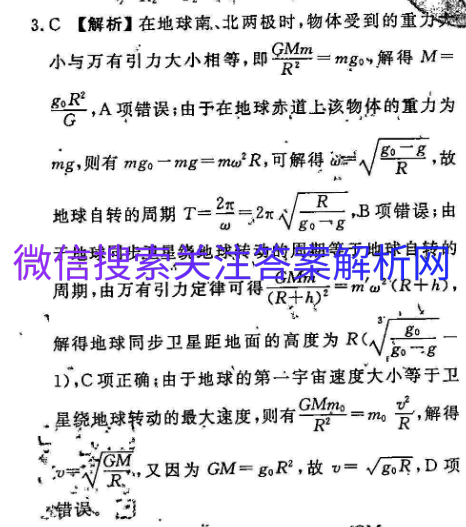 3. C 【解析】在地球南、北两极时,物体受到的重力大
小与万有引力大小相等,即 $\frac{GMm}{R^2}=mg_0$,解得 $M=$
$\frac{g_0R^2}{G}$,A项错误;由于在地球赤道上该物体的重力为
$mg$,则有 $mg_0-mg=m\omega^2R$,可解得 $\omega=\sqrt{\frac{g_0-g}{R}}$,故
地球自转的周期 $T=\frac{2\pi}{\omega}=2\pi\sqrt{\frac{R}{g_0-g}}$,B项错误;由
于地球同步卫星绕地球转动的周期等于地球自转的
微信搜索关注答案解析网
周期,由万有引力定律可得 $\frac{GMm'}{(R+h)^2}=m'\omega^2(R+h)$,
解得地球同步卫星距地面的高度为 $R(\sqrt[3]{\frac{g_0}{g_0-g}}-$
$1)$,C项正确;由于地球的第一宇宙速度大小等于卫
星绕地球转动的最大速度,则有 $\frac{GMm_0}{R^2}=m_0\frac{v^2}{R}$,解得
$v=\sqrt{\frac{GM}{R}}$,又因为 $GM=g_0R^2$,故 $v=\sqrt{g_0R}$,D项
错误。